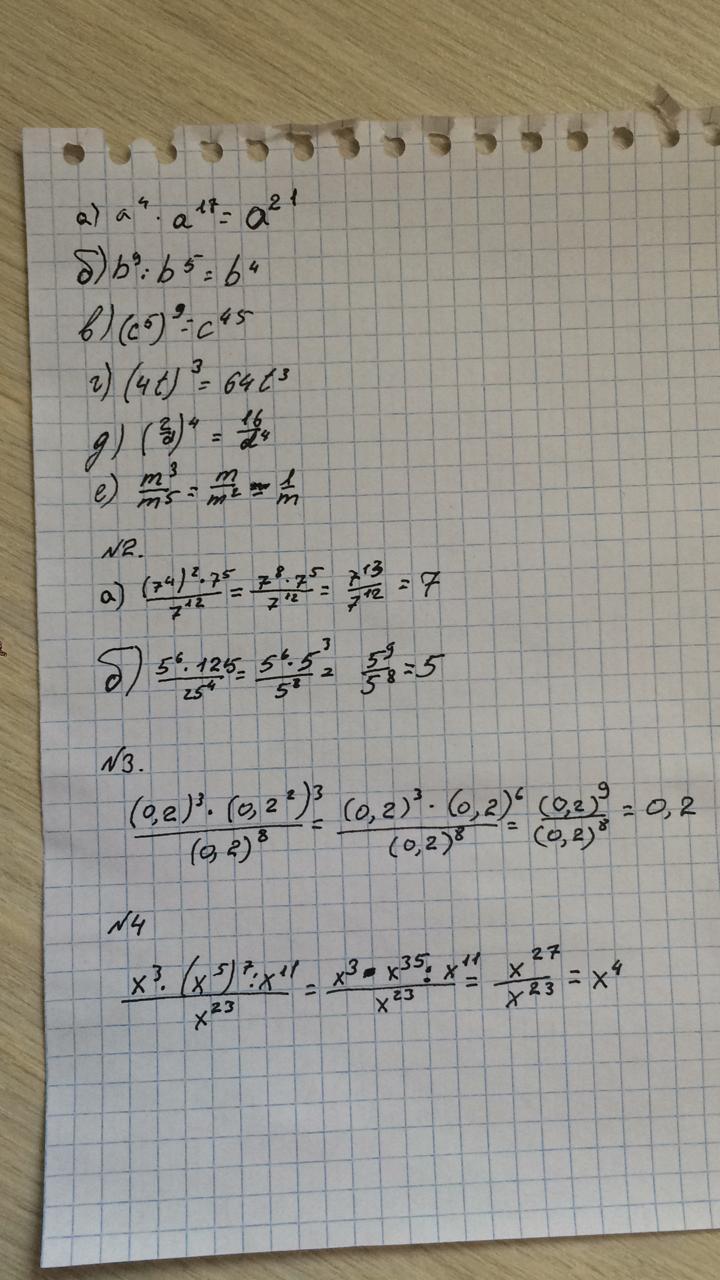 а) a⁴ · a¹⁷ = a²¹
б) b⁹ : b⁵ = b⁴
в) (c⁵)⁹ = c⁴⁵
г) (4t)³ = 64t³
д) (2/d)⁴ = 16/d⁴
е) m³/m⁵ = m/m² = 1/m
№2.
а) ((7⁴)² · 7⁵)/7¹² = (7⁸ · 7⁵)/7¹² = 7¹³/7¹² = 7
б) (5⁶ · 125)/25⁴ = (5⁶ · 5³)/5⁸ = 5⁹/5⁸ = 5
№3.
((0,2)³ · (0,2²)³)/(0,2)⁸ = ((0,2)³ · (0,2)⁶)/(0,2)⁸ = (0,2)⁹/(0,2)⁸ = 0,2
№4
(x³ · (x⁵)⁷ : x¹¹)/x²³ = (x³ · x³⁵ : x¹¹)/x²³ = x²⁷/x²³ = x⁴